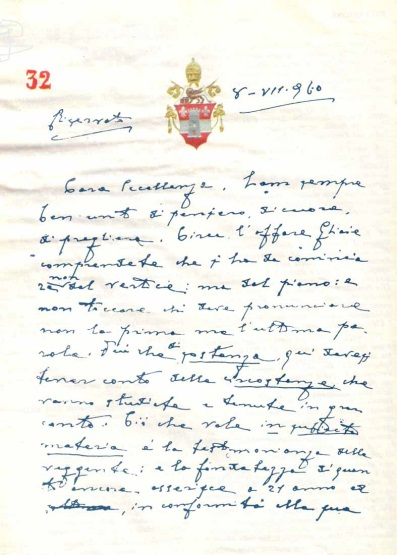 32
8 - VII. 960
Riservata
Cara Eccellenza. Siam sempre
ben uniti di pensiero, di cuore,
di preghiera. Circa l'affare Ghiaie
comprendete che si ha da cominciare
non dal vertice; ma dal piano: e
non toccare chi deve pronunciare
non la prima ma l'ultima pa-
rola. Più che di sostanza, qui devesi
tener conto delle circostanze che
vanno studiate e tenute in gran
conto. Ciò che vale in subiecta
materia è la testimonianza della
veggente: e la fondatezza di quan
to ancora asserisce a 21 anno ed
, in conformità alla sua